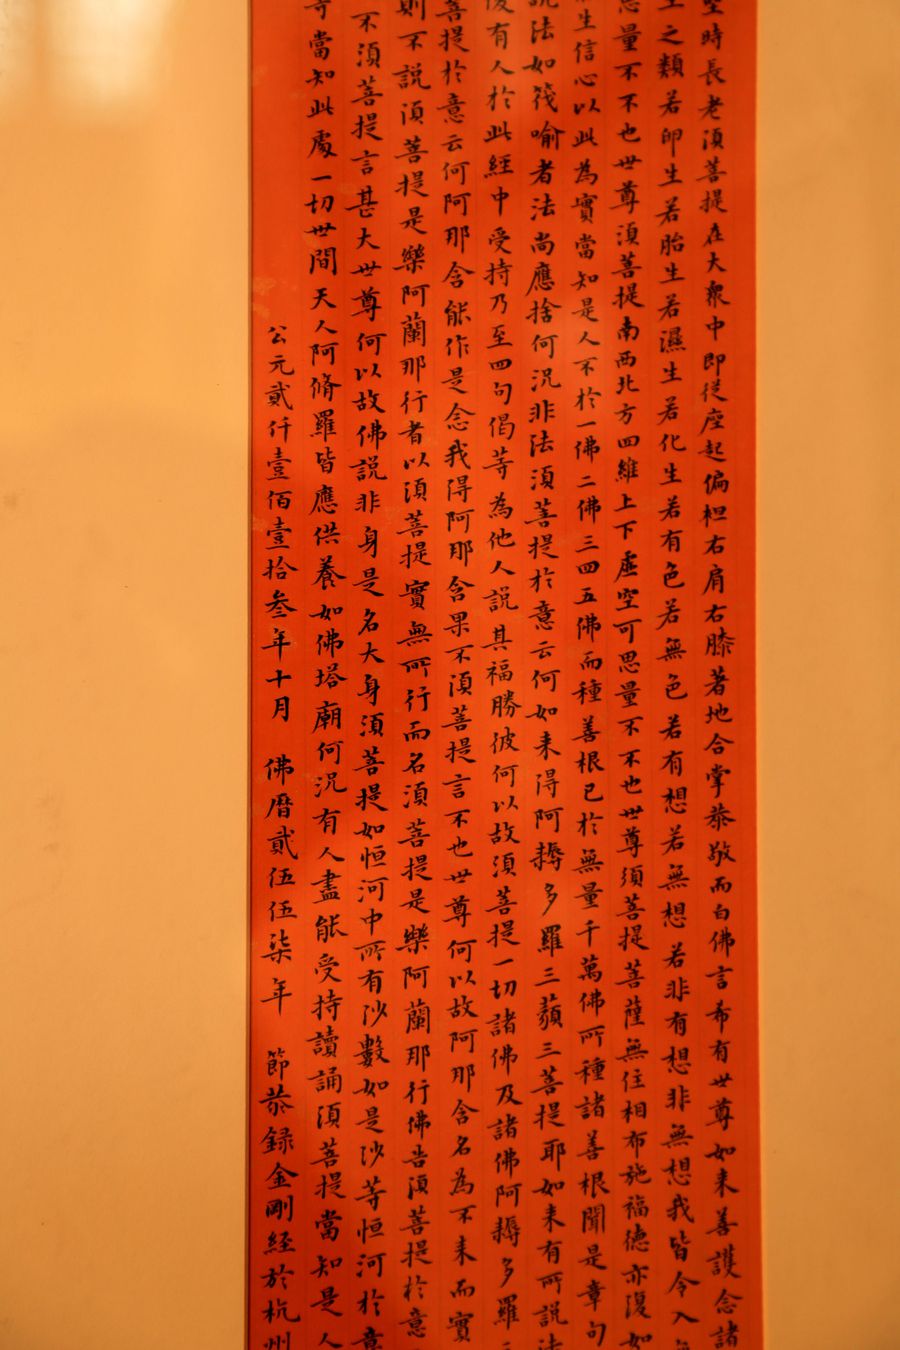 時長老須菩提在大衆中即從座起偏袒右肩右膝著地合掌恭敬而白佛言希有世尊如来善護念諸
之類若卵生若胎生若濕生若化生若有色若無色若有想若無想若非有想非無想我皆令入
思量不不也世尊須菩提南西北方四維上下虛空可思量不不也世尊須菩提菩薩無住相布施福德亦復如
生信心以此為實當知是人不於一佛二佛三四五佛而種善根已於無量千萬佛所種諸善根聞是章句
說法如筏喻者法尚應捨何況非法須菩提於意云何如来得阿耨多羅三藐三菩提耶如来有所說法
復有人於此經中受持乃至四句偈等為他人說其福勝彼何以故須菩提一切諸佛及諸佛阿耨多羅
菩提於意云何阿那含能作是念我得阿那含果不須菩提言不也世尊何以故阿那含名為不来而實
則不說須菩提是樂阿蘭那行者以須菩提實無所行而名須菩提是樂阿蘭那行佛告須菩提於意
不須菩提言甚大世尊何以故佛說非身是名大身須菩提如恒河中所有沙數如是沙等恒河於意
等當知此處一切世間天人阿脩羅皆應供養如佛塔廟何況有人盡能受持讀誦須菩提當知是人
公元貳仟壹佰壹拾叁年十月 佛曆貳伍伍柒年 節恭録金剛經於杭州